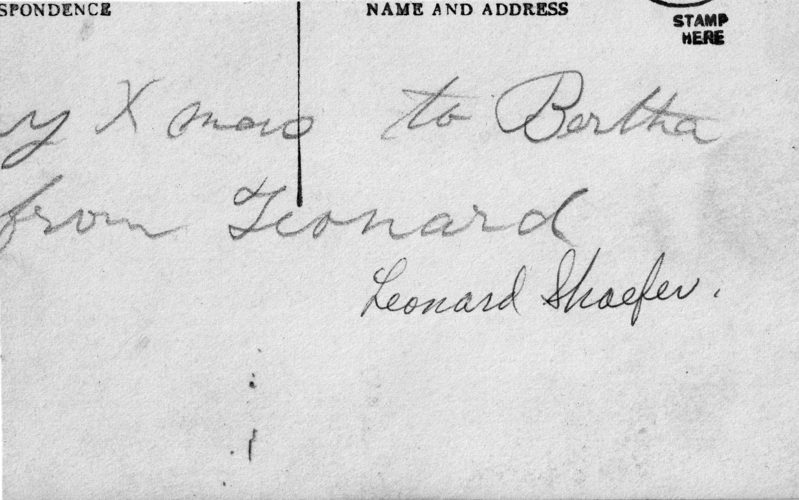 SPONDENCE
NAME AND ADDRESS
STAMP
HERE
y Xmas to Bertha
from Leonard
Leonard Shaefer.